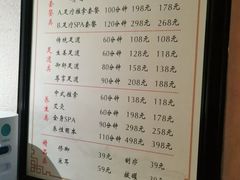 套餐
A.足疗推拿套餐 100分钟 198元 178元
B.足疗SPA套餐 120分钟 298元 268元
足道类
传统足道 60分钟 108元 88元
生姜足道 60分钟 128元 108元
御轩足道 80分钟 158元 138元
尊享足道 90分钟 208元 188元
养生类
中式推拿 60分钟 138元 118元
艾灸 60分钟 138元 118元
全身SPA 60分钟 198元 178元
养生 110分钟 298元 258元
修脚 39元 刮痧 39元
采耳 59元 拔罐